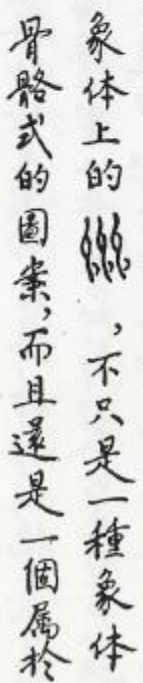 象体上的，不只是一種象体
骨骼式的圖案，而且還是一個属於